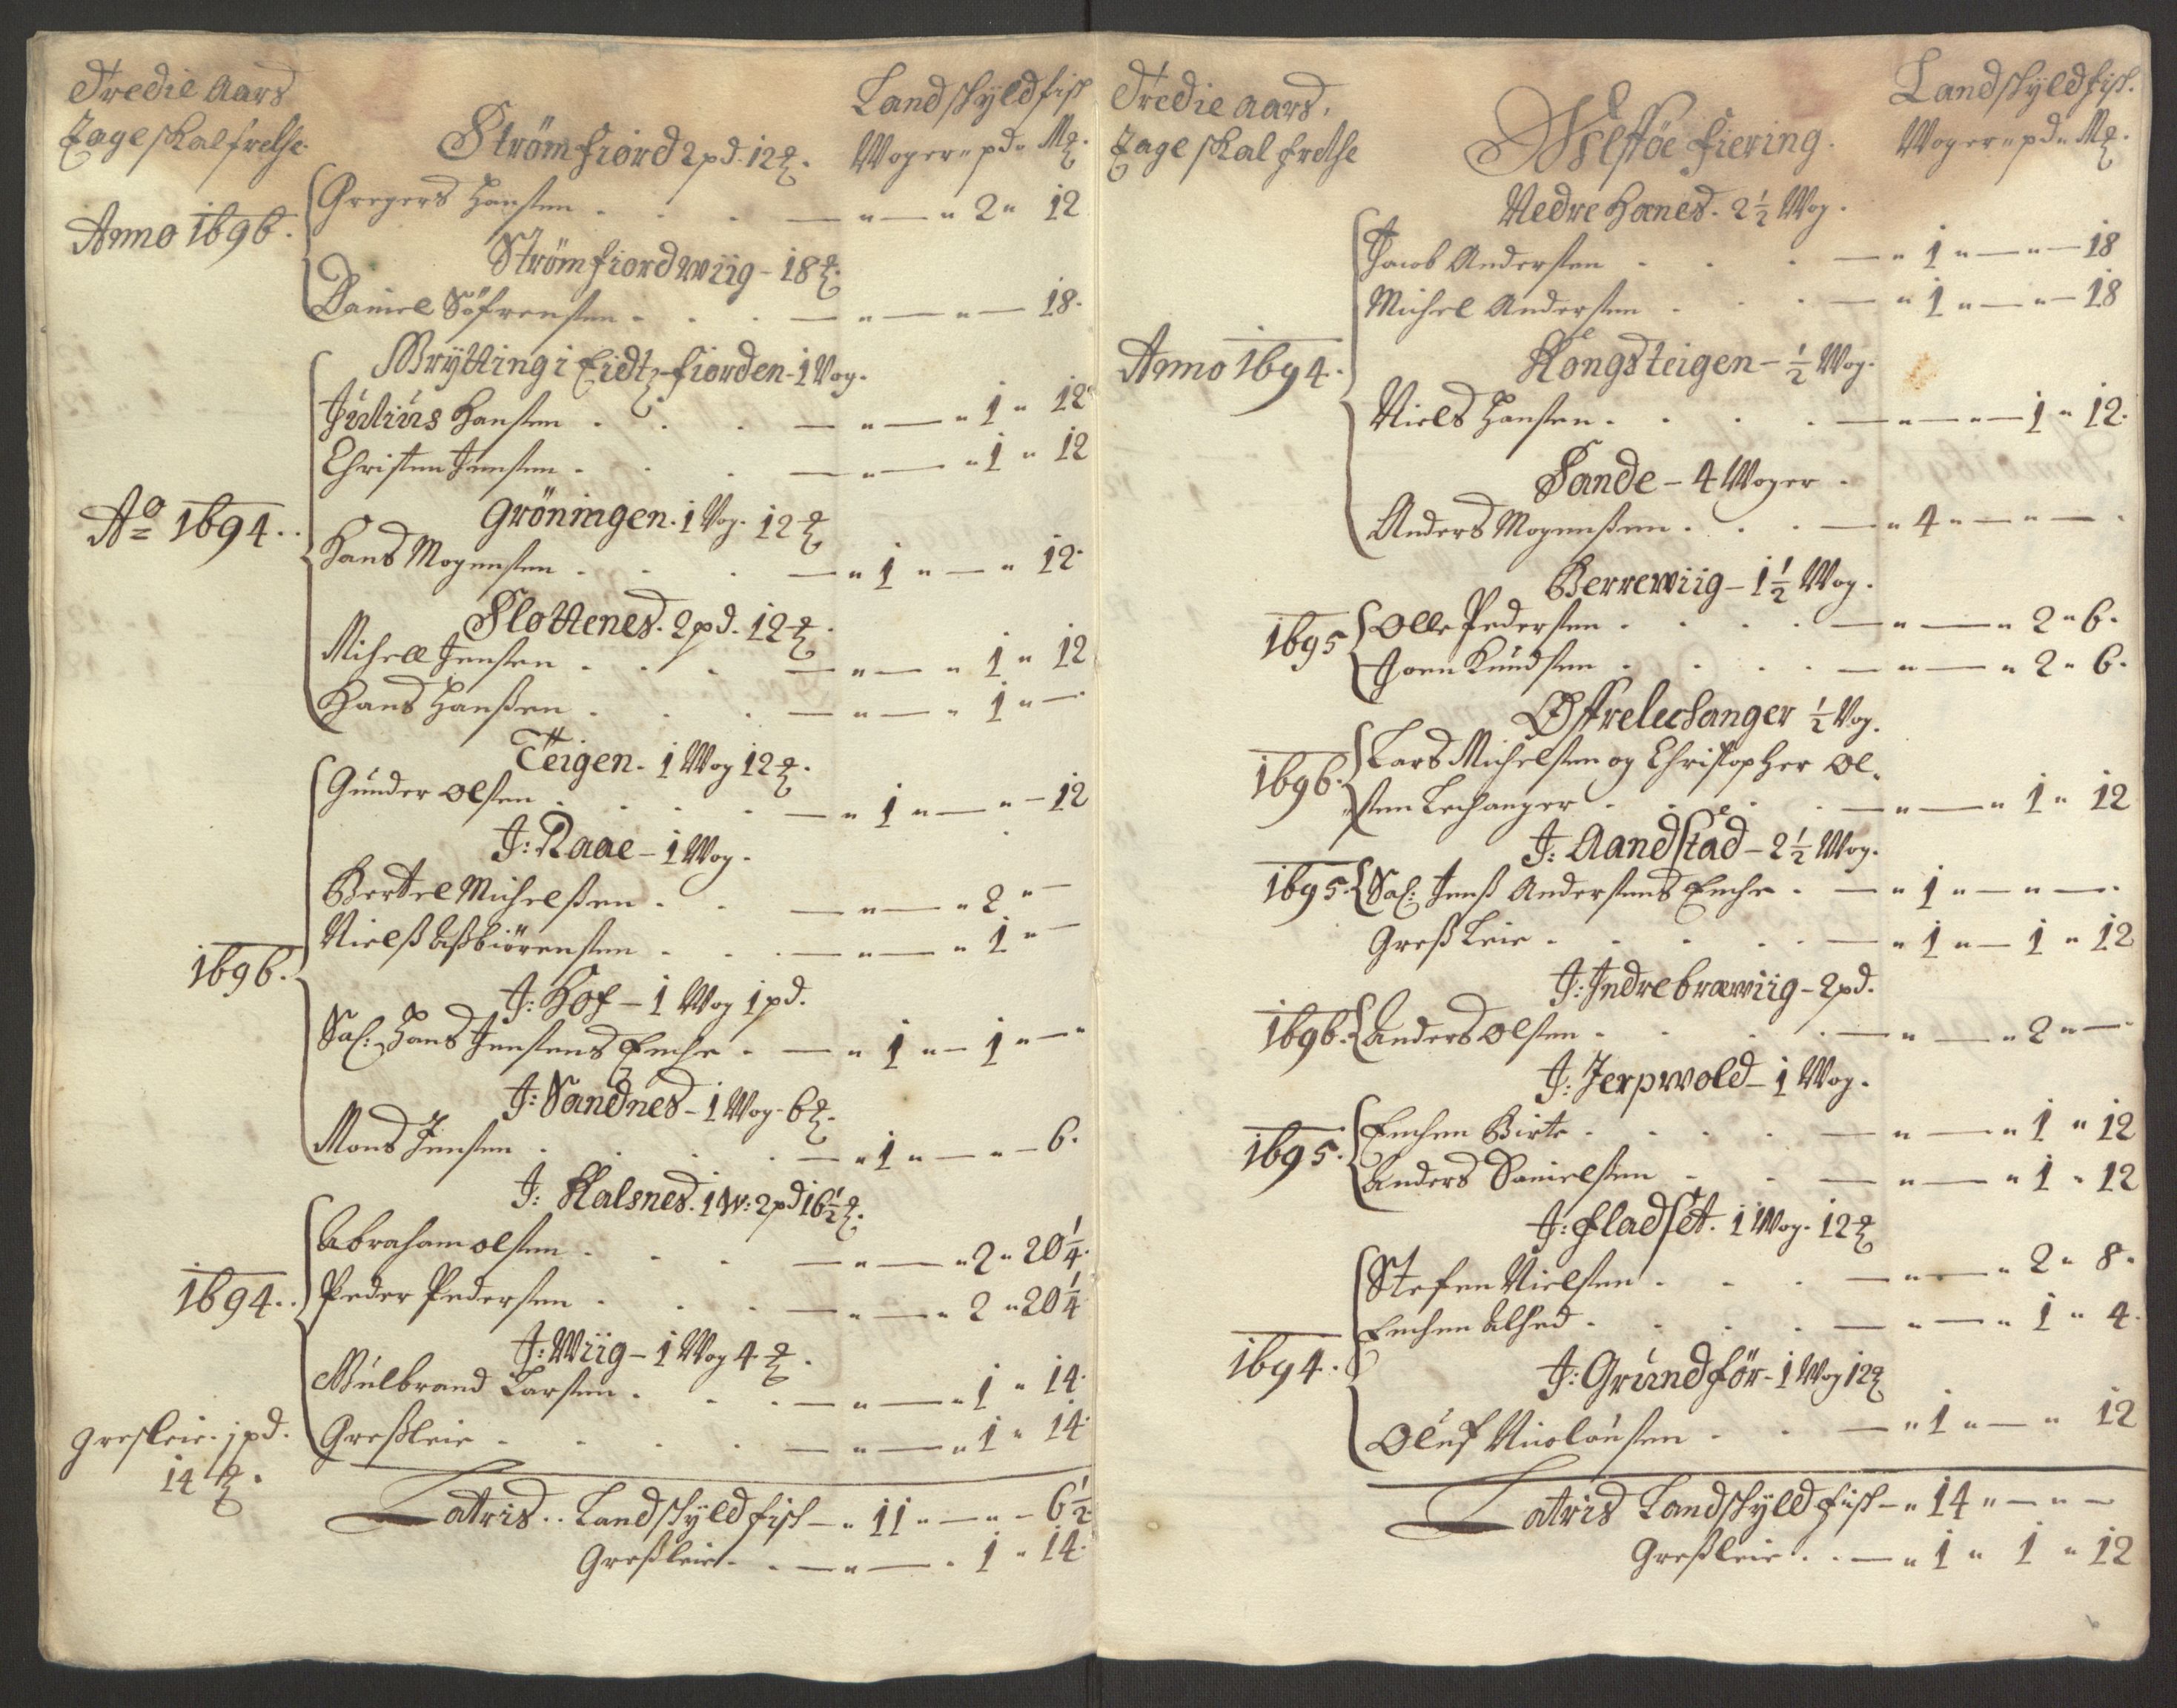 Tredie Aars
Tage skal frelse.
Landskyld fisk
Woger " pd " M℔.
Strömfiord 2 pd. 12 ℔.
Gregers Hansten . . . — " — " 2 " 12
Anno 1696.
Strömfiordwiig - 18 ℔.
Daniel Söfrensten . . . — " — " — 18.
Brytting i Eidtzfiorden - 1 Vog.
Julius Hansten . . . — " — " 1 " 12
Christen Jensten . . . — " — " 1 " 12
Ao 1694..
Gröningen. 1 Vog. 12 ℔
Hans Mogensten . . . — " 1 " — " 12.
Slottenes. 2 pd. 12 ℔.
Michell Jensten . . . — " — " 1 " 12
Hans Hanßen . . . — " — " 1 " —
Teigen. 1 Wog 12 ℔.
Gunder Olsten . . . — " 1 " — " — 12
J: Raae - 1 Wog.
Bertel Michelßen . . — " — " 2 " —
Nielß Aßbiörensten . . — " — " 1 " —
1696.
J: Hof - 1 Wog 1 pd.
Sal: Hans Jenstens Enche . — " 1 " — 1 " —
J: Sandnes - 1 Wog. 6 ℔.
Mons Jensten . . . — " 1 " — " — 6.
J: Kalsnes. 1 W: 2 pd 16½ ℔.
Abraham Olsten . . . — " — " 2 " 20¼.
1694..
Peder Pedersten . . . — " — " 2 " 20¼
J: Wiig - 1 Wog 4 ℔.
Gulbrand Larsten . . . — " — " 1 " 14.
Gresleie. 1 pd.
14 ℔.
Greßleie . . . . — " — " 1 " 14.
Latris.. Landskyld fisk — " 11 " — " — 6½
Greßleie . . — " — . 1 " 14.
Tredie Aars.
Tage skal frelse
Landskyld fisk.
Woger " pd " M℔.
Fiering.
Nedre Hanes. 2½ Wog.
Jacob Andersten . . . — " 1 " — " — 18
Michel Andersten . . . — " 1 " — " — 18
Anno 1694.
Kongsteigen - ½ Wog.
Niels Hansten . . . . — " — " — 1 " 12.
Sande - 4 Woger .
Anders Mogenßen . . . — " 4 " — " — .
Berrewiig - 1½ Wog.
1695
Olle Pedersten . . . . — " — " 2 " 6.
Joen Knudsten . . . . — " — " 2 " 6.
Øffrelechanger ½ Vog.
1696.
Lars Michelsten og Christopher Ol-
sten Lechanger . . . — " — " 1 " 12
J: Aandstad - 2½ Wog.
1695.
Sal: Jenß Anderstens Enche . — " 1 " — " — .
Greß Leie . . . . . — " 1 " — 1 " 12
J: Indrebræwiig - 2 pd.
1696.
Anders Olsten . . . . — " — " 2 " — .
J: Jerpwold - 1 Wog.
1695.
Enchen Birte . . . . — " — " 1 " 12
Anders Danielsten . . . — " — " 1 " 12
J: Fladset. 1 Wog. 12 ℔
Stefen Nielsten . . . — " — " 2 " 8.
Enchen Alhed . . . . — " — " 1 " 4.
1694.
J: Grundför - 1 Wog 12 ℔
Oluf Nicolausten . . . — " 1 " — " 12
Latris Landskyld fisk — " 14 " — " —
Greßleie . . — " 1 " 1 " 12